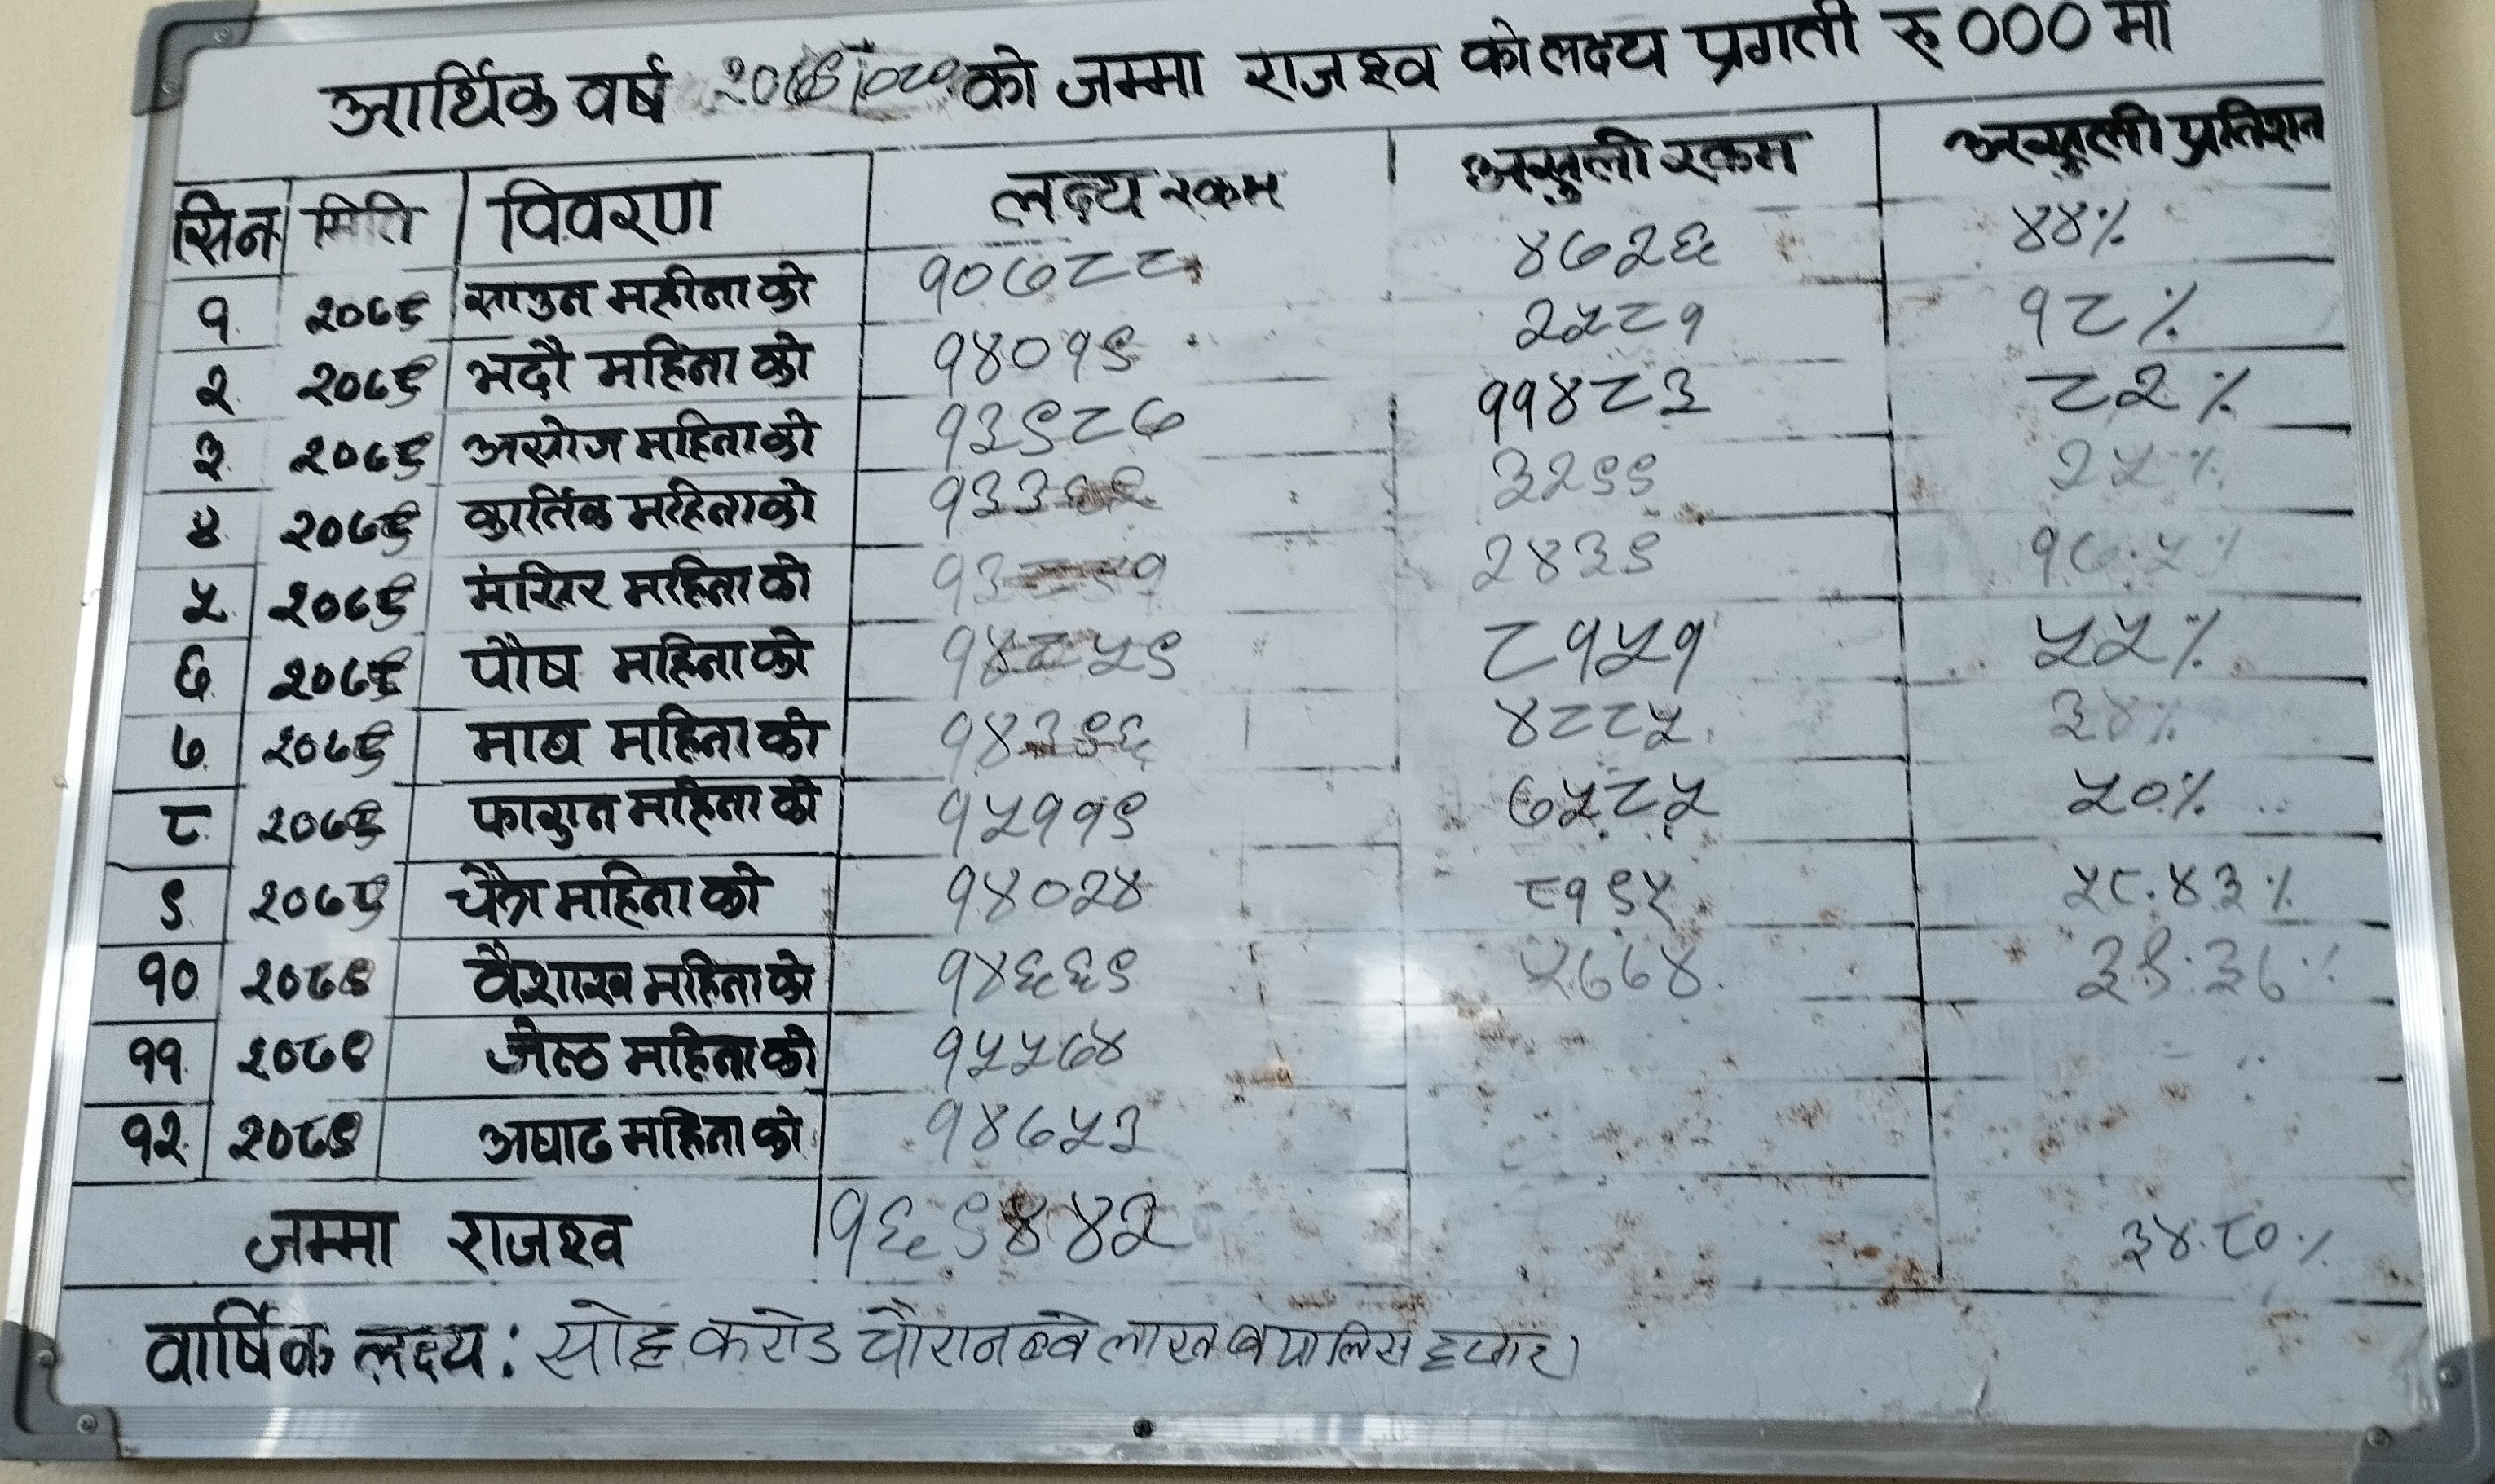 आर्थिक वर्ष को जम्मा राजश्व को लक्ष्य प्रगती रु ००० मा
सि.न. मिति विवरण लक्ष्य रकम असुली रकम असुली प्रतिशत
१. २०७९ साउन महीना को १०७८८ ४७२६ ४४%
२. २०७९ भदौ महिना को १४०१९ २५८१ १८%
३. २०७९ असोज महिना को १३९८७ ११४८३ ८२%
४. २०७९ कार्तिक महिना को ३२९९ २५%
५. २०७९ मंसिर महिना को २४३९ १७.५%
६. २०७९ पौष महिना को १४८५९ ८१५१ ५५%
७. २०७९ माघ महिना को १४३९६ ४८८५ ३४%
८. २०७९ फागुन महिना को १५११९ ७५८५ ५०%
९. २०७९ चैत्र महिना को १४०२४ ८१९५ ५८.४३%
१० वैशाख महिना को १४६६९ ५७७४ ३९.३६%
११. जेष्ठ महिना को १५५७४
१२. अषाढ महिना को १४७५३
जम्मा राजश्व १६९४४२ ३४.८०%
वार्षिक लक्ष्य: सोह्र करोड चौरानब्बे लाख बयालिस हजार।